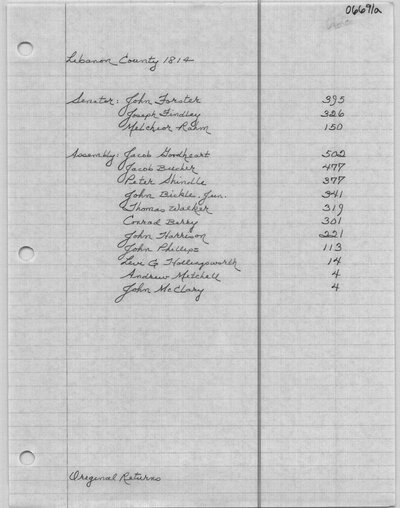 06691a
Lebanon County 1814
Senator: John Forster 395
Joseph Findley 326
Melcheor Rahm 150
Assembly: Jacob Goodheart 502
Jacob Bucher 477
Peter Shindle 377
John Bickle, Jun. 341
Thomas Walker 319
Conrad Barry 301
John Harrison 221
John Phillips 113
Levi G Hollingsworth 14
Andrew Mitchell 4
John McClary 4
Original Returns